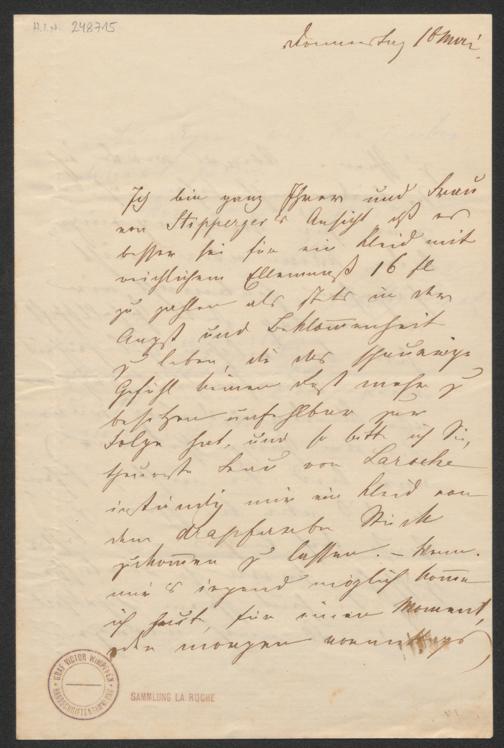 H.I.N. 248715
Donnerstag 10 Mai.
Ich bin ganz Ihrer und Frau
von Stipperger's Ansicht daß es
besser sei für ein Kleid mit
reichlichem Ellenmaß 16 fl
zu zahlen als stets in der
Angst und Beklommenheit
zu leben, die das
Gefühl keinen Rest mehr zu
besitzen unfehlbar zur
Folge hat, und so bitte ich Sie,
theuerste Frau von Laroche
inständig mir ein Kleid von
dem drapfarbe Stück
zukommen zu lassen. – Wenn
mir's irgend möglich komme
ich heut, für einen Moment,
oder morgen vormittags
GRAF VICTOR WIMPFFEN
SAMMLUNG LA ROCHE